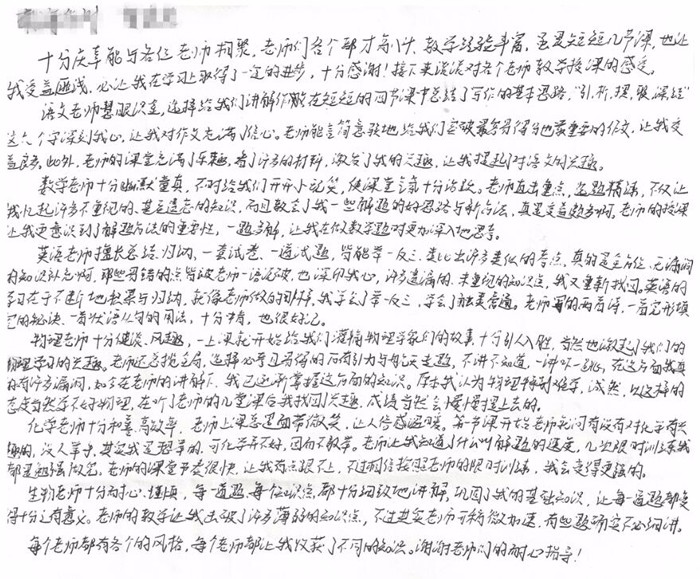 十分庆幸能与各位老师相聚，老师们各个都才高八斗，教学经验丰富，虽是短短几节课，也让
我受益匪浅，也让我在学习上取得了一定的进步，十分感谢！接下来谈谈对各个老师教学授课的感受。
语文老师慧眼识金，选择给我们讲解作文在短短的四节课中总结了写作的基本思路，“引、析、理、联、深、结”
这六个字深刻我心，让我对作文充满了信心。老师能言简意赅地给我们突破最容易得分也最重要的作文，让我受
益良多。此外，老师的课堂充满了乐趣，看了许多的材料，激发了我的兴趣，让我提起对语文的兴趣。
数学老师十分幽默童真，不时给我们开开小玩笑，使课堂气氛十分活跃。老师直击重点，选题精湛，不仅让
我忆起许多不重视的、甚至遗忘的知识，而且教会了我一些解题的好思路与新方法，真是受益颇多啊。老师的授课
让我更意识到了解题方法的重要性，一题多解，让我在做数学题时更加深入地思考。
英语老师擅长总结、归纳，一套试卷、一道试题，皆能举一反三，类比出许多类似的考点，真的是全方位、无漏洞
的知识补充啊，那些易错的点皆被老师一语说破，也深印我心，许多遗漏的、未重视的知识点，我又重新找回。英语的
学习在于不断地积累与归纳，就像老师做的那样，我学会了举一反三，学会了触类旁通。老师写的两首诗，一首完形填
空的秘诀、一首状语从句的用法，十分中肯，也很好记。
物理老师十分健谈、风趣，一上课就开始给我们灌输物理学家们的故事，十分引人入胜，自然也激起了我们的
物理学习的兴趣。老师还总揽全局，选择必考且易得的万有引力与电学专题，不讲不知道，一讲吓一跳，在这方面我真
的有许多漏洞，如今在老师的讲解下，我已逐渐掌握这方面的知识。原本我认为物理特别难学，诚然，以这样的
态度自然学不好物理，在听了老师的几堂课后我找回兴趣，成绩自然会慢慢提上去的。
化学老师十分和善、高效率，老师上课总是面带微笑，让人倍感温暖，每节课开始老师先问有没有对化学有兴
趣的，没人举手，其实我是想举的，可化学并不好，因而不敢举。老师让我知道了什么叫解题的速度，几次限时训练我
都是勉强做完，老师的课堂节奏很快，让我有点跟不上，不过相信按照老师的限时训练，我会变得更强的。
生物老师十分耐心、谨慎，每一道题、每个知识点都十分细致地讲解，巩固了我的基础知识，让每一道题都变
得十分有意义。老师的教学让我击破了许多薄弱的知识点，不过其实老师可稍微加速，有些题确实不必细讲。
每个老师都有各个的风格，每个老师都让我收获了不同的知识。谢谢老师们的耐心指导！